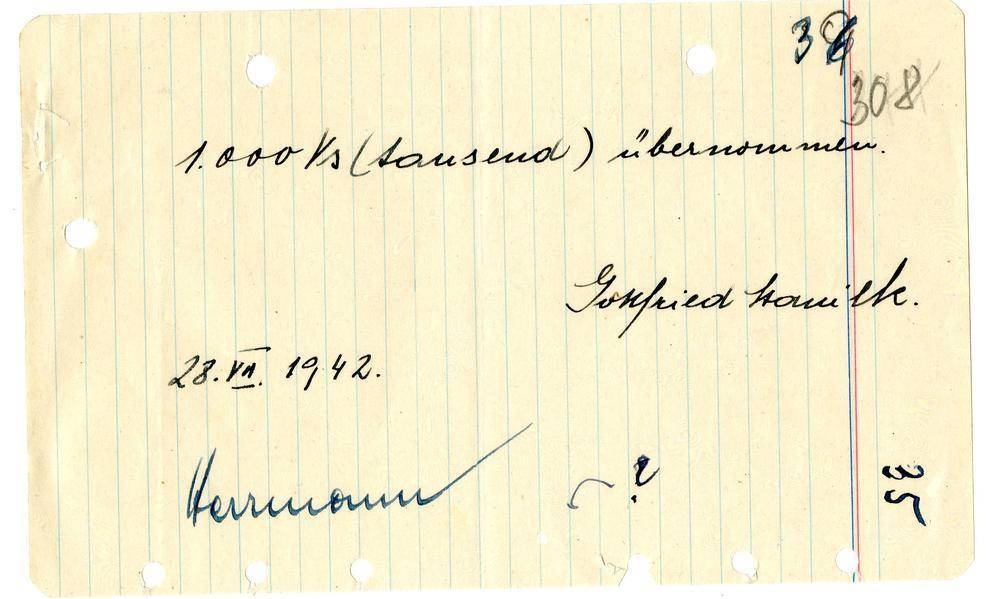 308
1.000 Ks (tausend) übernommen.
Gottfried
28.VII. 1942.
Herrmann
?
35